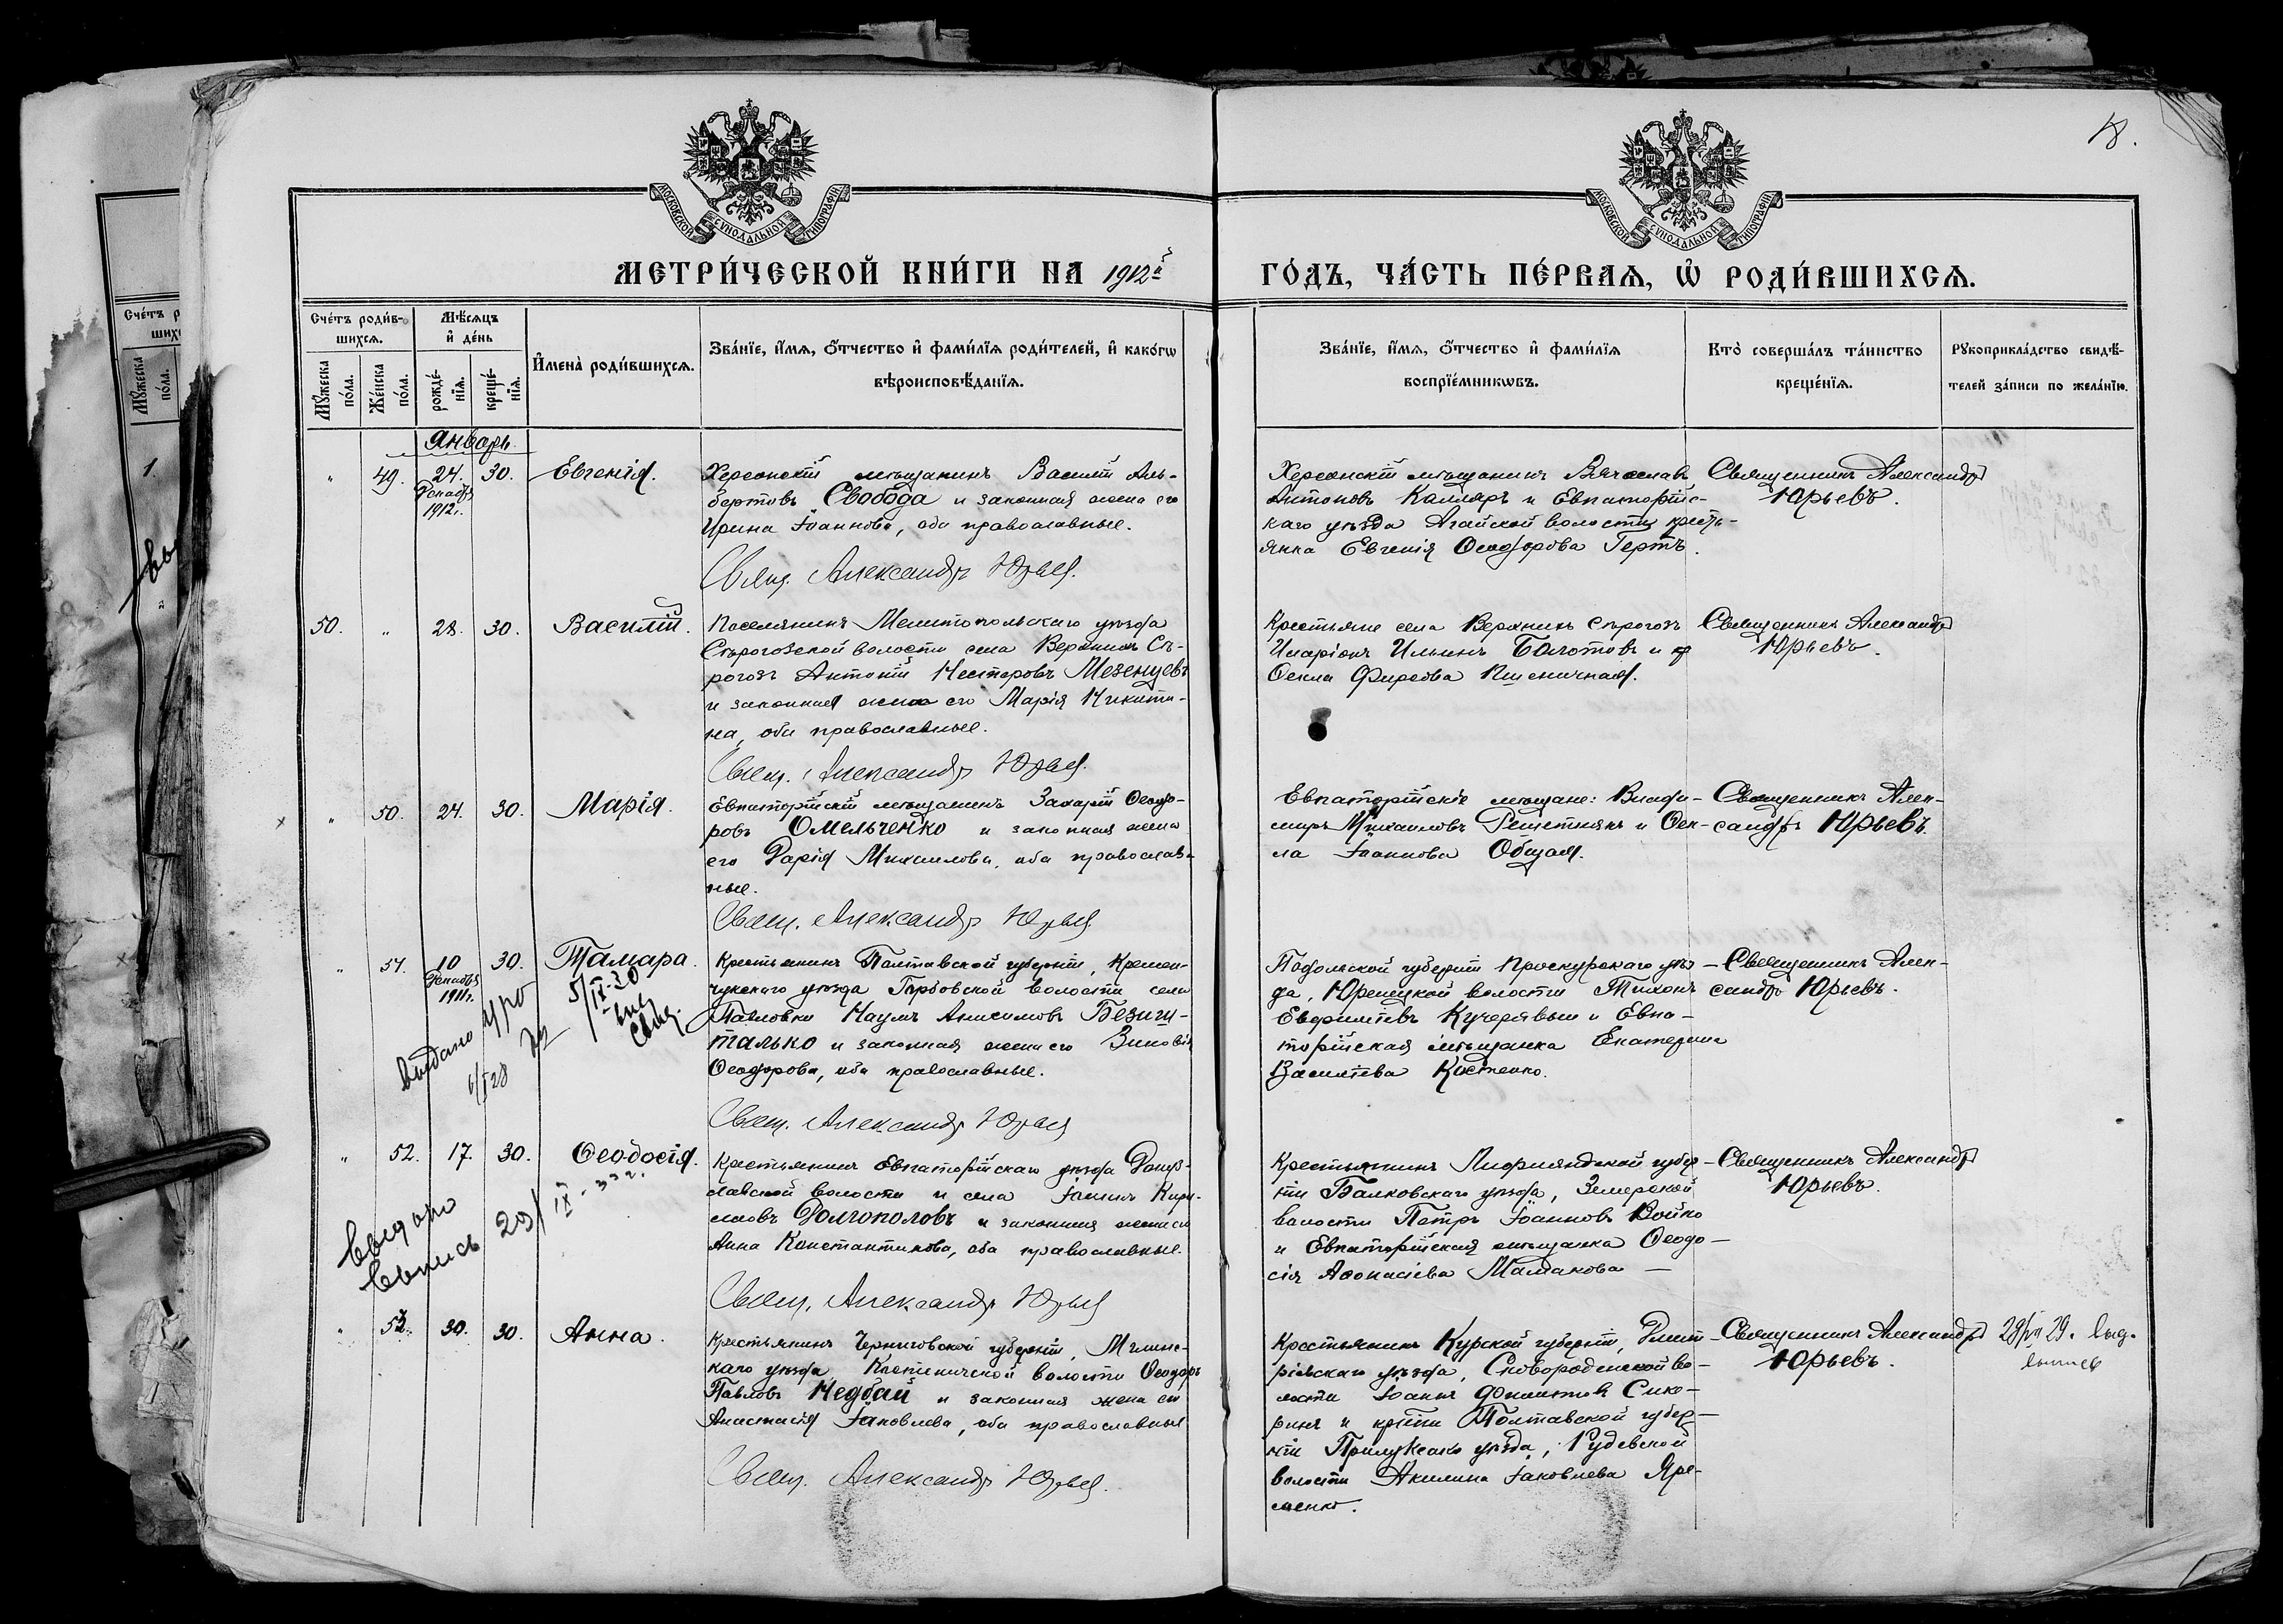 18.
МОСКОВСКОЙ СѴНОДАЛЬНОЙ ТИПОГРАФІИ
МОСКОВСКОЙ СѴНОДАЛЬНОЙ ТИПОГРАФІИ
МЕТРИ́ЧЕСКОЙ КНИ́ГИ НА 1912й
ГО́ДЪ, ЧА́СТЬ ПЕ́РВАѦ, Ѡ҆ РОДИ́ВШИХСѦ.
Сче́тъ роди́в-
шихсѧ.
Мꙋ́жеска по́ла.
Же́нска по́ла.
Мѣ́сѧцъ
и҆ де́нь
рожде́-
нїѧ.
креще́-
нїѧ.
И҆мена̀ роди́вшихсѧ.
Зва́нїе, и҆́мѧ, ѻ҆́тчество и҆ фами́лїѧ роди́телей, и҆ како́гѡ
вѣроисповѣ́данїѧ.
Зва́нїе, и҆́мѧ, ѻ҆́тчество и҆ фами́лїѧ
воспрїе́мникѡвъ.
Кто̀ соверша́лъ та́инство
креще́нїѧ.
Рꙋкоприкла́дство свидѣ́-
телей за́писи по жела́нїю.
Январь.
„ 49. 24. 30. Евгенія.
Декабря
1912г.
Херсонскій мѣщанинъ Василій Аль-
бертовъ Свобода и законная жена его
Ирина Іоаннова, оба православные.
Свящ. Александръ Юрьев.
Херсонскій мѣщанинъ Вячеславъ
Антоновъ Калляръ и Евпаторійс-
каго уѣзда Агайской волости кресть-
янка Евгенія Ѳеодорова Гертъ.
Священникъ Александръ
Юрьевъ.
50. „ 28. 30. Василій.
Поселянинъ Мелитопольскаго уѣзда
Сѣрогозской волости села Верхнихъ Сѣ-
рогозъ Антоній Несторовъ Мезенцевъ
и законная жена его Марія Никити-
на, оба православные.
Свящ. Александръ Юрьев.
Крестьяне села Верхнихъ Сѣрогозъ
Иларіонъ Ильинъ Болотовъ и
Ѳекла Фирсова Пшеничная.
Священникъ Александръ
Юрьевъ.
„ 50. 24. 30. Марія.
Евпаторійскій мѣщанинъ Захарій Ѳеодо-
ровъ Омельченко и законная жена
его Дарія Михаилова, оба православ-
ные.
Свящ. Александръ Юрьев.
Евпаторійскіе мѣщане: Влади-
миръ Михаиловъ Решетнякъ и Ѳек-
ла Іоаннова Общая.
Священникъ Алек-
сандръ Юрьевъ.
„ 51. 10 30. Тамара.
Декабря
1911г.
выдано
6/I 28
5/IX-30
свид.
Крестьянинъ Полтавской губерніи, Кремен-
чукскаго уѣзда Горбовской волости села
Павловки Наумъ Анисимовъ Безги-
талько и законная жена его Зиновія
Ѳеодорова, оба православные.
Свящ. Александръ Юрьев
Подольской губерніи Проскурскаго уѣз-
да, Юринецкой волости Тихонъ
Евфиміевъ Кучерявый и Евпа-
торійская мѣщанка Екатерина
Василіева Костенко.
Священникъ Алек-
сандръ Юрьевъ.
„ 52. 17. 30. Ѳеодосія.
Выдана
выпись 29/IX-33г.
Крестьянинъ Евпаторійскаго уѣзда Донуз-
лавской волости и села Іоаннъ Кири-
лловъ Долгополовъ и законная жена его
Анна Константинова, оба православные.
Свящ. Александръ Юрьев
Крестьянинъ Лифляндской губер-
ніи Валковскаго уѣзда, Земерской
волости Петръ Іоанновъ Войко
и Евпаторійская мѣщанка Ѳеодо-
сія Аѳонасіева Мамакова
Священникъ Александръ
Юрьевъ.
„ 53. 30. 30. Анна.
Крестьянинъ Черниговской губерніи, Мглинс-
каго уѣзда Костеничской волости Ѳеодоръ
Павловъ Недбай и законная жена его
Анастасія Іаковлева, оба православные
Свящ. Александръ Юрьев.
Крестьянинъ Курской губерніи, Дмит-
ріевскаго уѣзда, Сковородненской во-
лости Іоаннъ Сико-
ринъ и кр-ка Полтавской губер-
ніи Прилукскаго уѣзда, Рудовской
волости Акилина Іаковлева Яре-
менко.
Священникъ Александръ
Юрьевъ.
29/VII 29. выд.
выпись